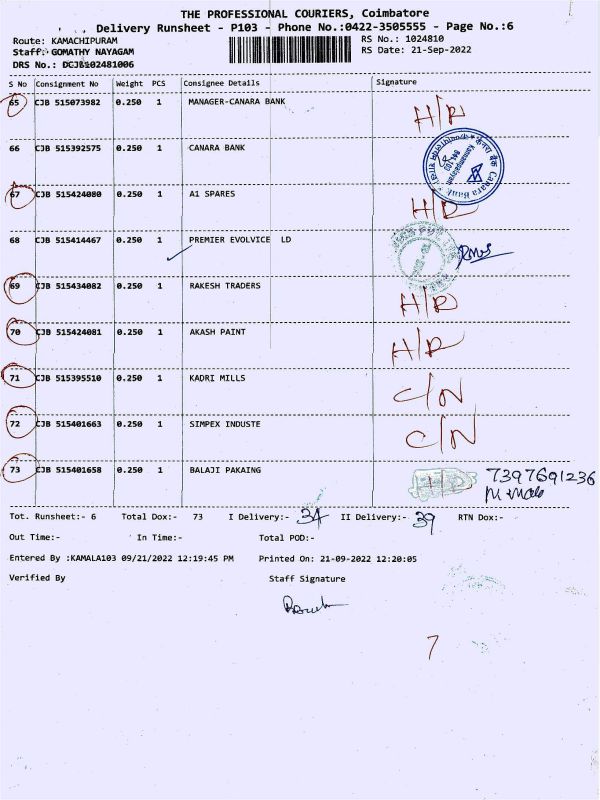 THE PROFESSIONAL COURIERS, Coimbatore
Delivery Runsheet - P103 - Phone No.:0422-3505555 - Page No.:6
Route: KAMACHIPURAM RS No.: 1024810
Staff: GOMATHY NAYAGAM RS Date: 21-Sep-2022
DRS No.: DGJB102481006
S No Consignment No Weight PCS Consignee Details Signature
65 CJB 515073982 0.250 1 MANAGER-CANARA BANK H/R
66 CJB 515392575 0.250 1 CANARA BANK
67 CJB 515424080 0.250 1 A1 SPARES H/R
68 CJB 515414467 0.250 1 PREMIER EVOLVICE LD
69 CJB 515434082 0.250 1 RAKESH TRADERS H/R
70 CJB 515424081 0.250 1 AKASH PAINT H/R
71 CJB 515395510 0.250 1 KADRI MILLS C/N
72 CJB 515401663 0.250 1 SIMPEX INDUSTE C/N
73 CJB 515401658 0.250 1 BALAJI PAKAING 7397691236
Tot. Runsheet:- 6 Total Dox:- 73 I Delivery:- 34 II Delivery:- 39 RTN Dox:-
Out Time:- In Time:- Total POD:-
Entered By :KAMALA103 09/21/2022 12:19:45 PM Printed On: 21-09-2022 12:20:05
Verified By Staff Signature
7